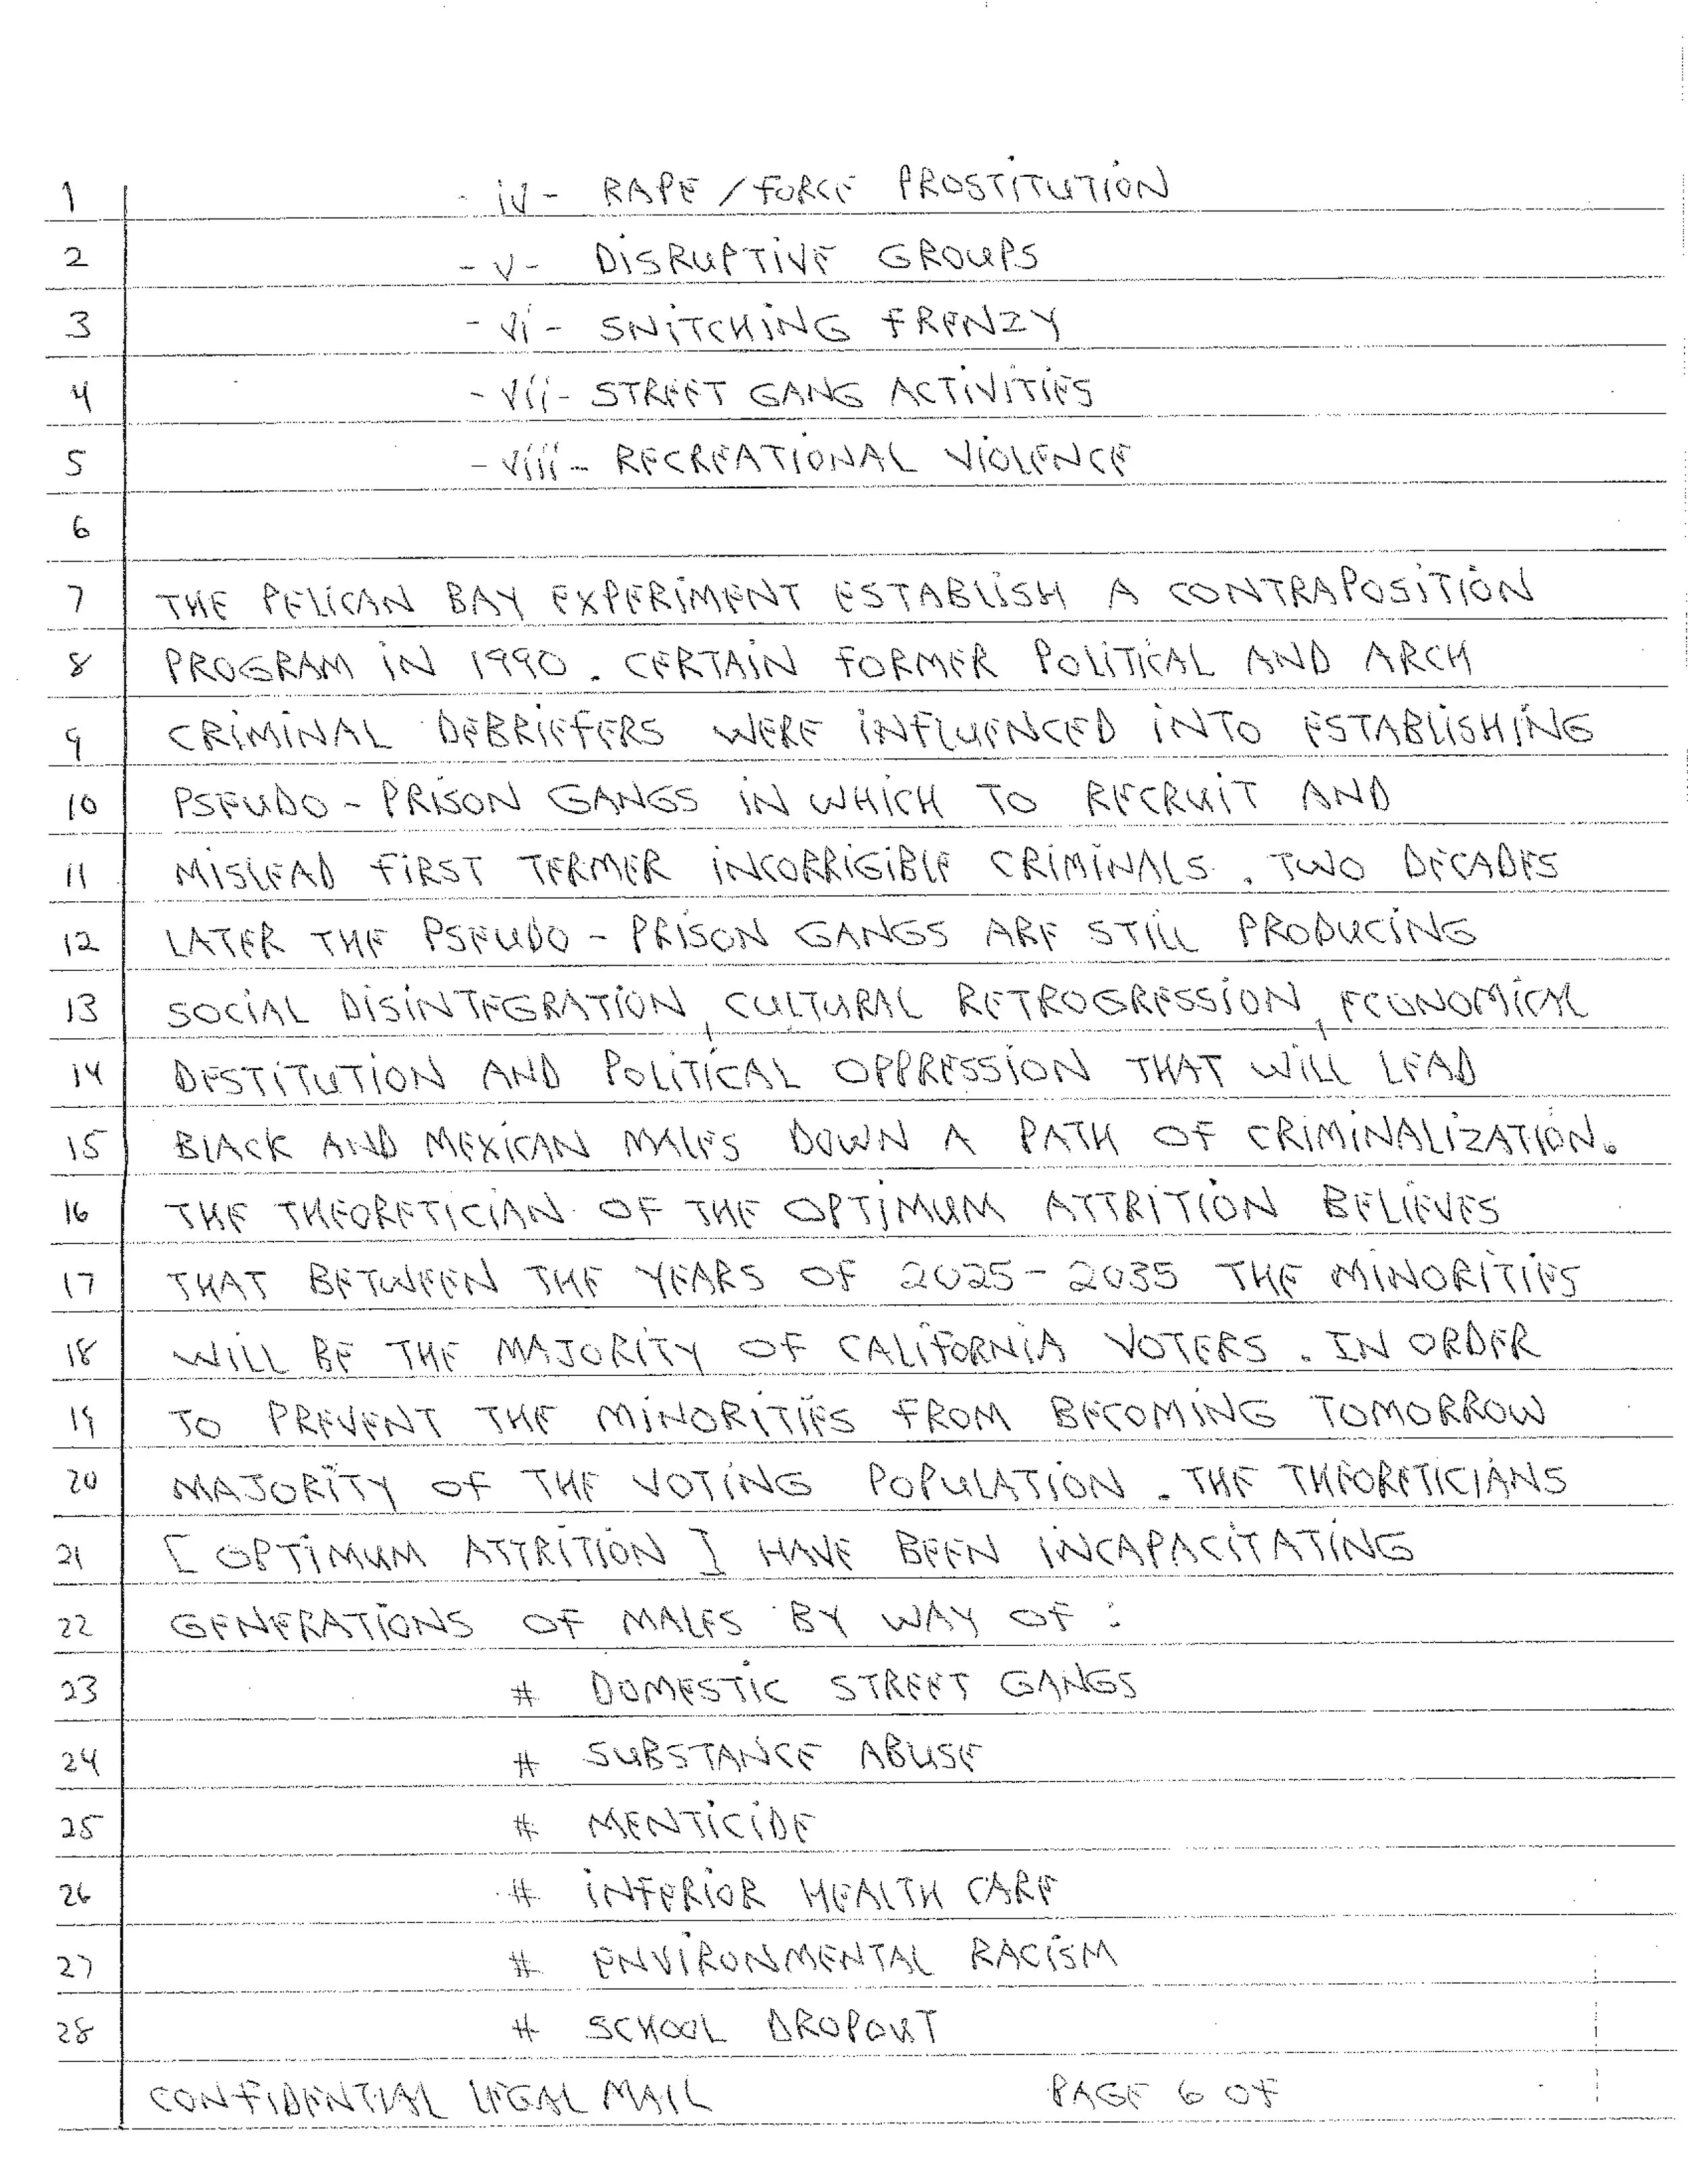 1 - iv - RAPE / FORCE PROSTITUTION
2 - v - DISRUPTIVE GROUPS
3 - vi - SNITCHING FRENZY
4 - vii - STREET GANG ACTIVITIES
5 - viii - RECREATIONAL VIOLENCE
6
7 THE PELICAN BAY EXPERIMENT ESTABLISH A CONTRAPOSITION
8 PROGRAM IN 1990. CERTAIN FORMER POLITICAL AND ARCH
9 CRIMINAL DEBRIEFERS WERE INFLUENCED INTO ESTABLISHING
10 PSEUDO - PRISON GANGS IN WHICH TO RECRUIT AND
11 MISLEAD FIRST TERMER INCORRIGIBLE CRIMINALS. TWO DECADES
12 LATER THE PSEUDO - PRISON GANGS ARE STILL PRODUCING
13 SOCIAL DISINTEGRATION, CULTURAL RETROGRESSION, ECONOMICAL
14 DESTITUTION AND POLITICAL OPPRESSION THAT WILL LEAD
15 BLACK AND MEXICAN MALES DOWN A PATH OF CRIMINALIZATION.
16 THE THEORETICIAN OF THE OPTIMUM ATTRITION BELIEVES
17 THAT BETWEEN THE YEARS OF 2025 - 2035 THE MINORITIES
18 WILL BE THE MAJORITY OF CALIFORNIA VOTERS. IN ORDER
19 TO PREVENT THE MINORITIES FROM BECOMING TOMORROW
20 MAJORITY OF THE VOTING POPULATION. THE THEORETICIANS
21 [ OPTIMUM ATTRITION ] HAVE BEEN INCAPACITATING
22 GENERATIONS OF MALES BY WAY OF :
23 # DOMESTIC STREET GANGS
24 # SUBSTANCE ABUSE
25 # MENTICIDE
26 # INFERIOR HEALTH CARE
27 # ENVIRONMENTAL RACISM
28 # SCHOOL DROPOUT
CONFIDENTIAL LEGAL MAIL PAGE 6 OF